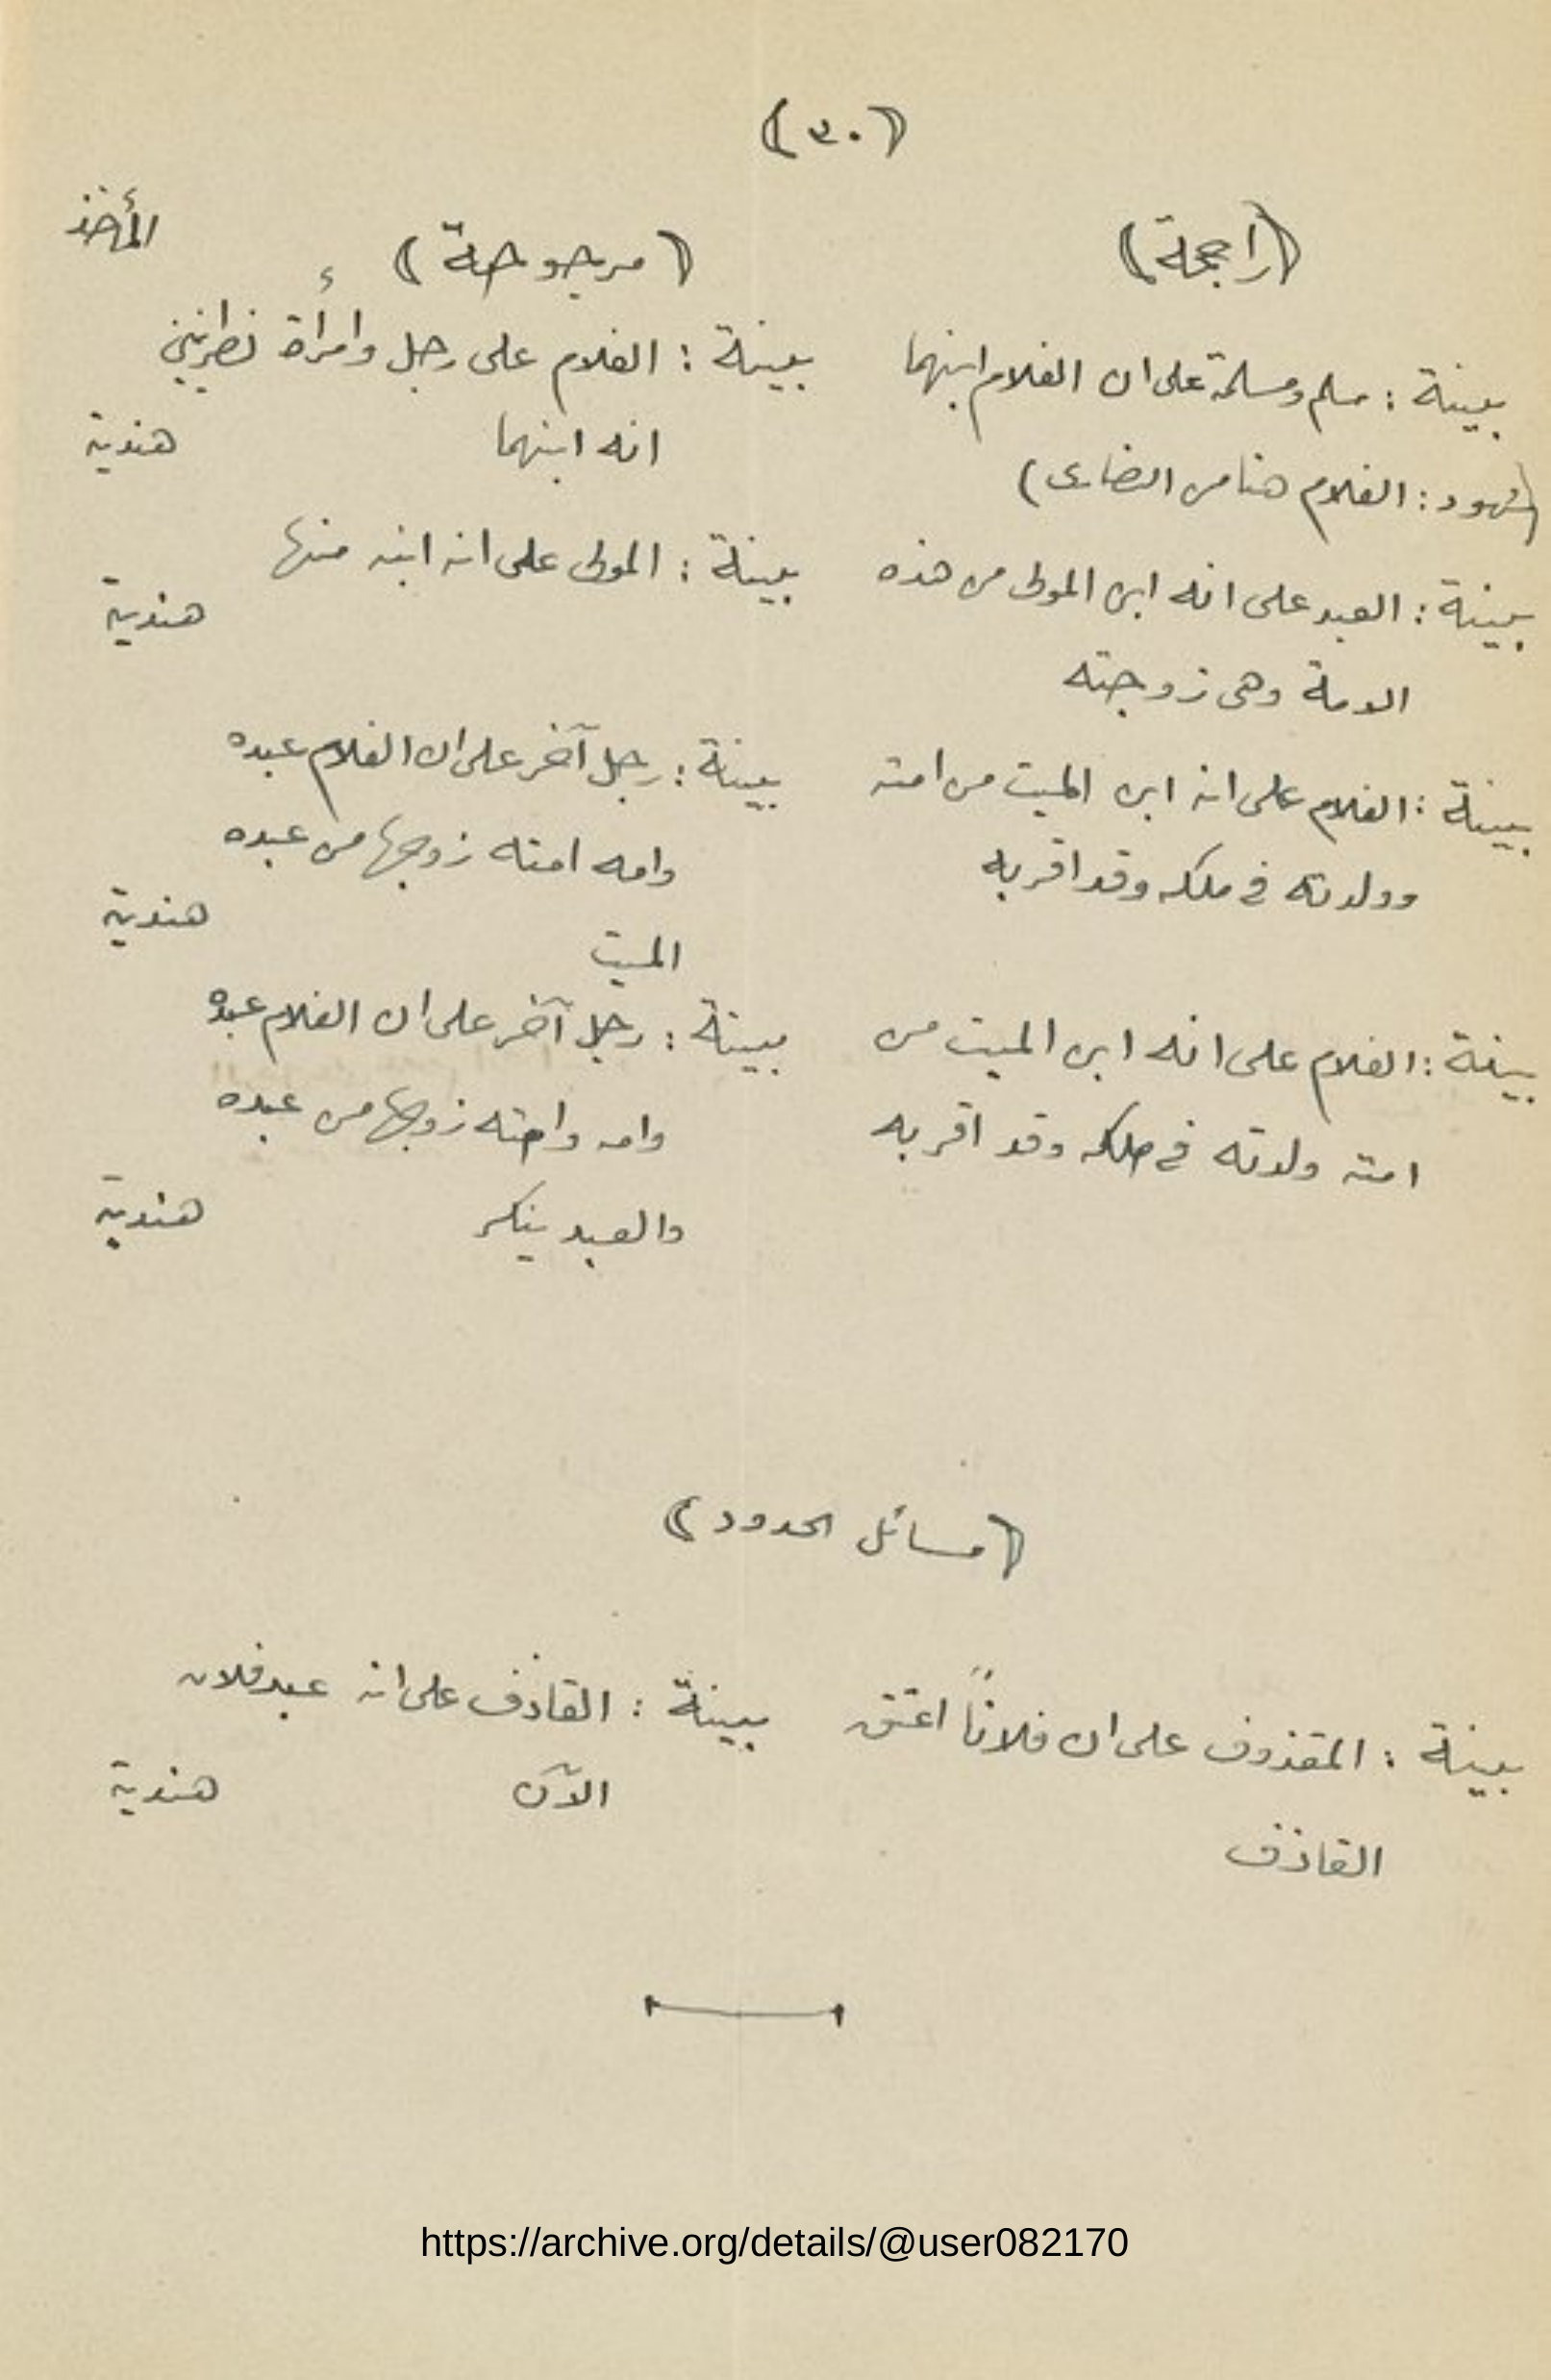 (٣٠)
(راجحة) (مرجوحة) المأخذ
بينة : مسلم ومسلمة على ان الغلام ابنهما
(شهود : الغلام هنا من النصارى)
بينة : الغلام على رجل وامرأة نصرانيين
انه ابنهما هندية
بينة : العبد على انه ابن المولى من هذه
الامة وهى زوجته
بينة : المولى على انه ابنه منها
هندية
بينة : الغلام على انه ابن الميت من امته
وولدته في ملكه وقد اقر به
بينة : رجل آخر على ان الغلام عبده
وامه امته زوجها من عبده
الميت هندية
بينة : الغلام على انه ابن الميت من
امته ولدته في ملكه وقد اقر به
بينة : رجل آخر على ان الغلام عبده
وامه وامته زوجها من عبده
والعبد ينكر هندية
(مسائل الحدود)
بينة : المقذوف على ان فلاناً اعتق
القاذف
بينة : القاذف على انه عبد فلان
الآن هندية
https://archive.org/details/@user082170